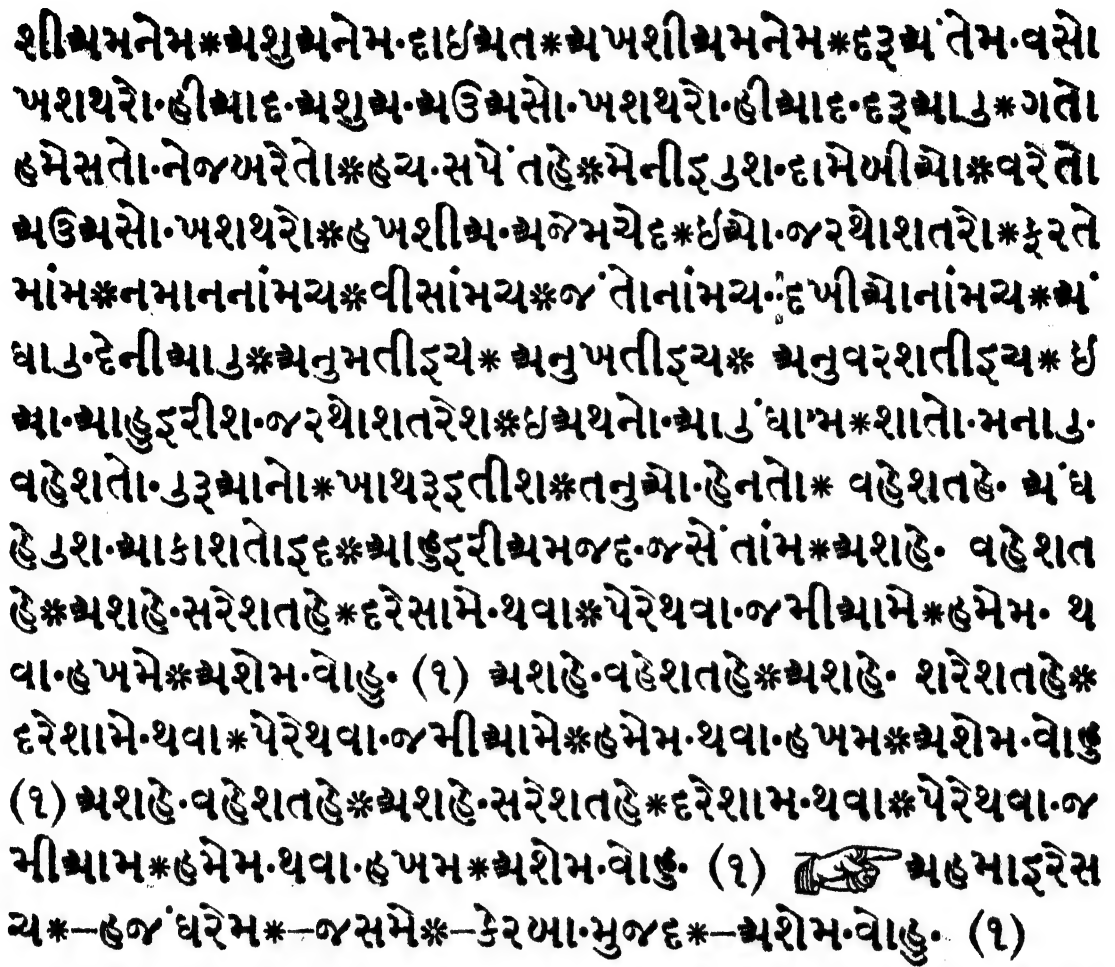 શીઅમનેમ*અશુઅનેમ·દાઈઅત*અખશીઅમનેમ*દરૂઅંતેમ·વસો
ખશથરો·હીઆદ·અશુઅ·અઉઅસો·ખશથરો·હીઆદ·દરૂઆઉ*ગતો
હમેસતો·નેજબરેતો*હચ·સપેંતહે*મેનીઇઉશ·દામેબીઓ*વરેતો
અઉઅસો·ખશથરો*હખશીઅ·અજેમચેદ*ઈઓ·જરથોશતરો*ફરતે
માંમ*નમાનનાંમચ*વીસાંમચ*જંતોનાંમચ·દખીઓનાંમચ*અં
ઘાઉ·દેનીઆઉ*અનુમતીઇચે* અનુખતીઇચ* અનુવરશતીઇચ* ઈ
આ·આહુઇરીશ·જરથોશતરેશ*ઈઅથનો·આઉંઘામ*શાતો·મનાઉ·
વહેશતો·ઉરૂઆનો*ખાથરૂઇતીશ*તનુઓ·હેનતો* વહેશતહે· અંઘ
હેઉશ·આકાશતોઇદ*આહુઇરીઅમજદ·જસેંતાંમ*અશહે· વહેશત
હે*અશહે·સરેશતહે*દરેસામે·થવા*પેરેથવા·જમીઆમે*હમેમ· થ
વા·હખમે*અશેમ·વોહુ· (૧) અશહે·વહેશતહે*અશહે· શરેશતહે*
દરેશામે·થવા*પેરેથવા·જમીઆમે*હમેમ·થવા·હખમ*અશેમ·વોહુ
(૧) અશહે·વહેશતહે*અશહે·સરેશતહે*દરેશામ·થવા*પેરેથવા·જ
મીઆમ*હમેમ·થવા·હખમ*અશેમ·વોહુ· (૧) ☞અહમાઇરેસ
ચ*—હજંઘરેમ*—જસમે*—કેરબા·મુજદ*—અશેમ·વોહુ· (૧)